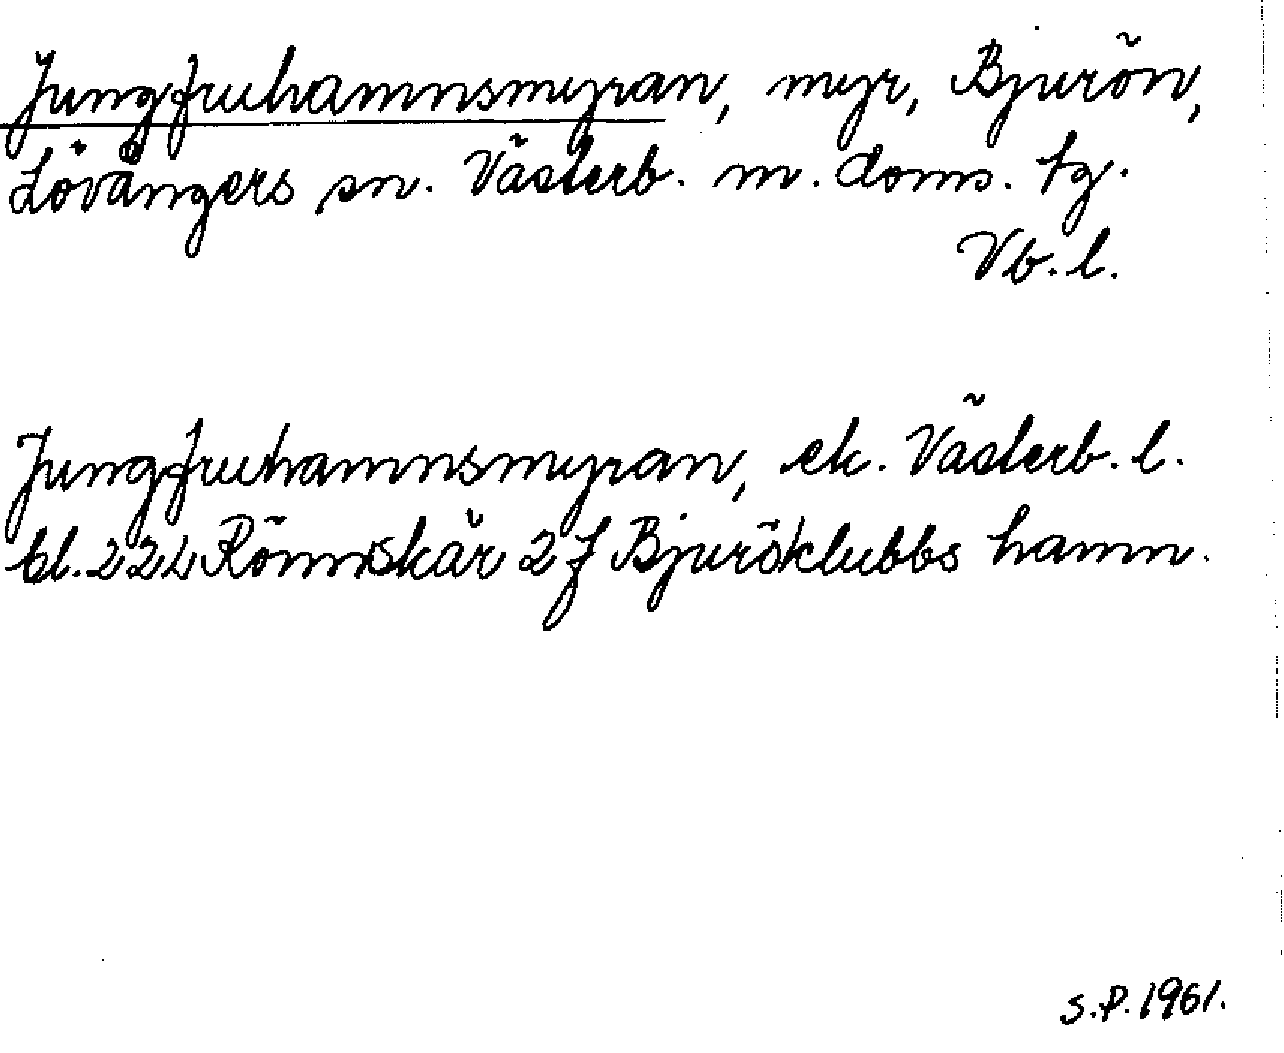 Jungfruhamnsmyran, myr, Bjurön,
Lövångers sn. Västerb. m. doms. tg.
Vb. l.
Jungfruhamnsmyran, ek. Västerb. l.
bl. 22L Rönnskär 2f Bjuröklubbs hamn.
S.P. 1961.